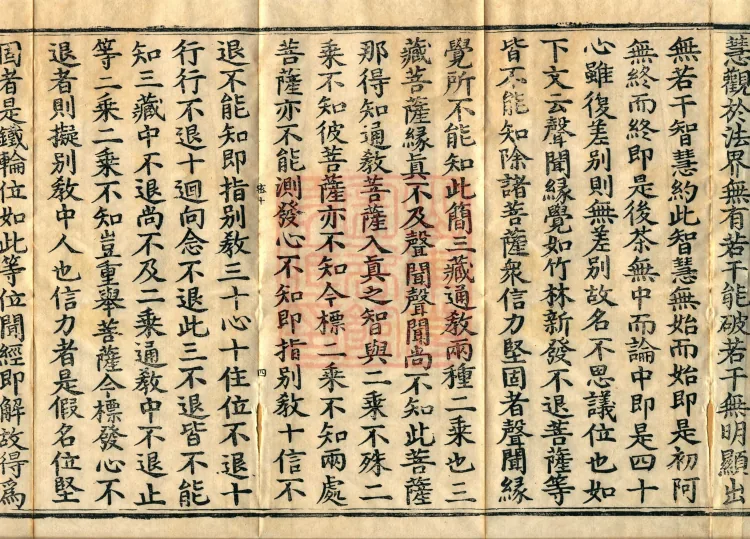 慧觀於法界無有若干能破若干無明顯出
無若干智慧約此智慧無始而始即是初阿
無終而終即是後茶無中而論中即是四十
心雖復差別則無差別故名不思議位也如
下文云聲聞緣覺如竹林新發不退菩薩等
皆不能知除諸菩薩衆信力堅固者聲聞緣
覺所不能知此簡三藏通教兩種二乘也三
藏菩薩緣真不及聲聞聲聞尚不知此菩薩
那得知通教菩薩入真之智與二乘不殊二
乘不知彼菩薩亦不知今標二乘不知兩處
菩薩亦不能測發心不知即指別教十信不
四
退不能知即指別教三十心十住位不退十
行行不退十迴向念不退此三不退皆不能
知三藏中不退尚不及二乘通教中不退止
等二乘二乘不知豈重舉菩薩今標發心不
退者則擬別教中人也信力者是假名位堅
固者是鐵輪位如此等位聞經即解故得爲